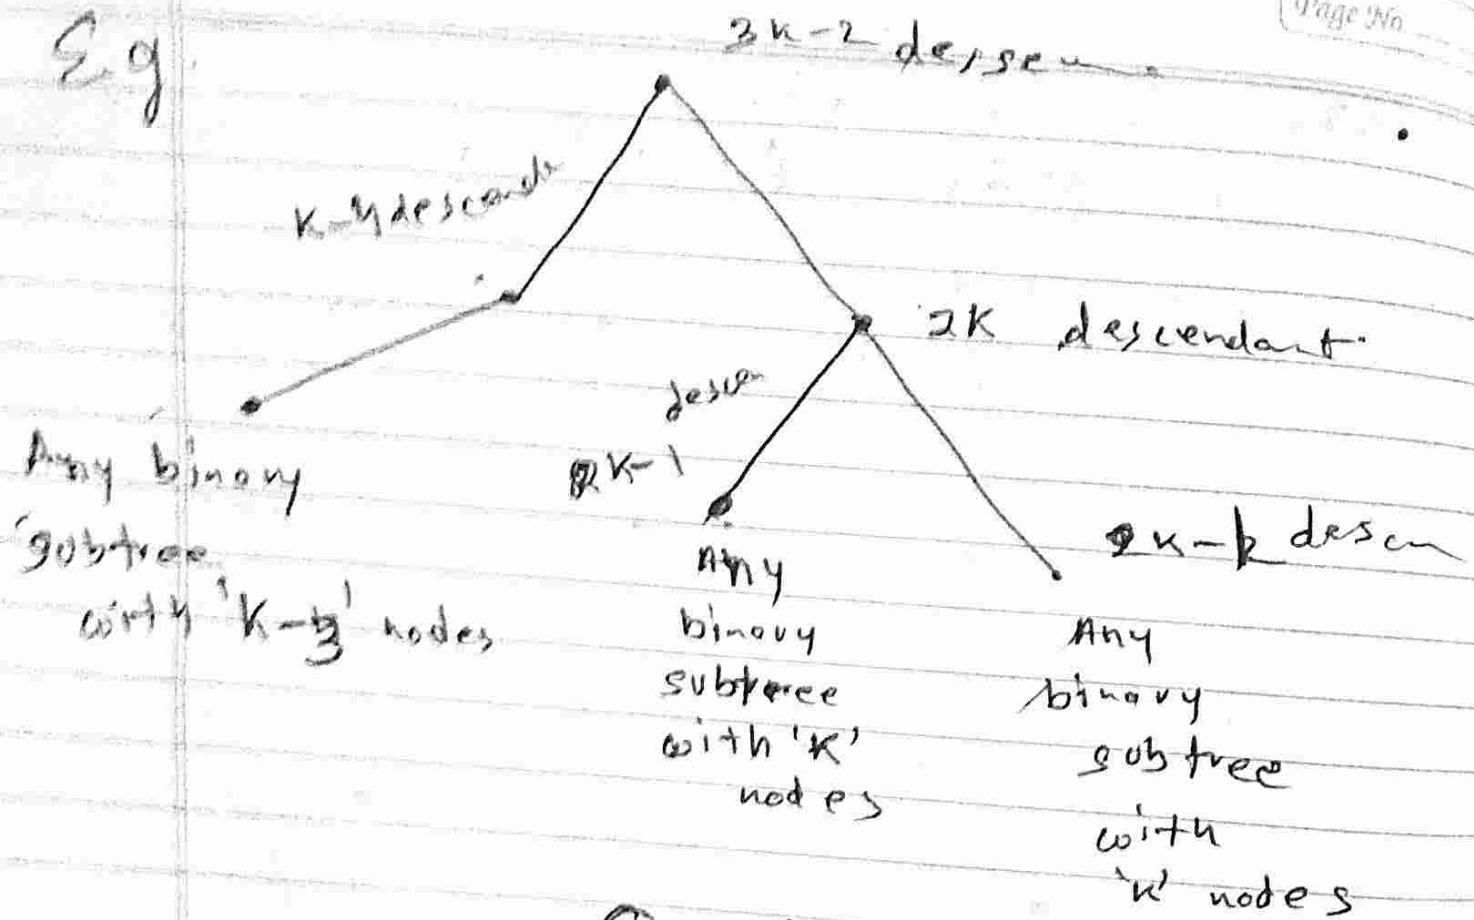 Page No
E.g.
3k-2 dessen
k-4 descende
2K descendant.
descen
2k-1
Any binary
subtree
with 'K-3' nodes
2k-k descen
Any
binary
subtree
with 'k'
nodes
Any
binary
subtree
with
'k' nodes